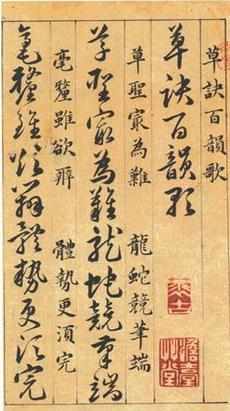 草訣百韻歌
草訣百韻歌
草聖㝡為難　龍蛇競筆端
草聖㝡為難龍蛇競筆端
毫釐雖欲辨　體勢更須完
毫釐雖欲辨體勢更須完